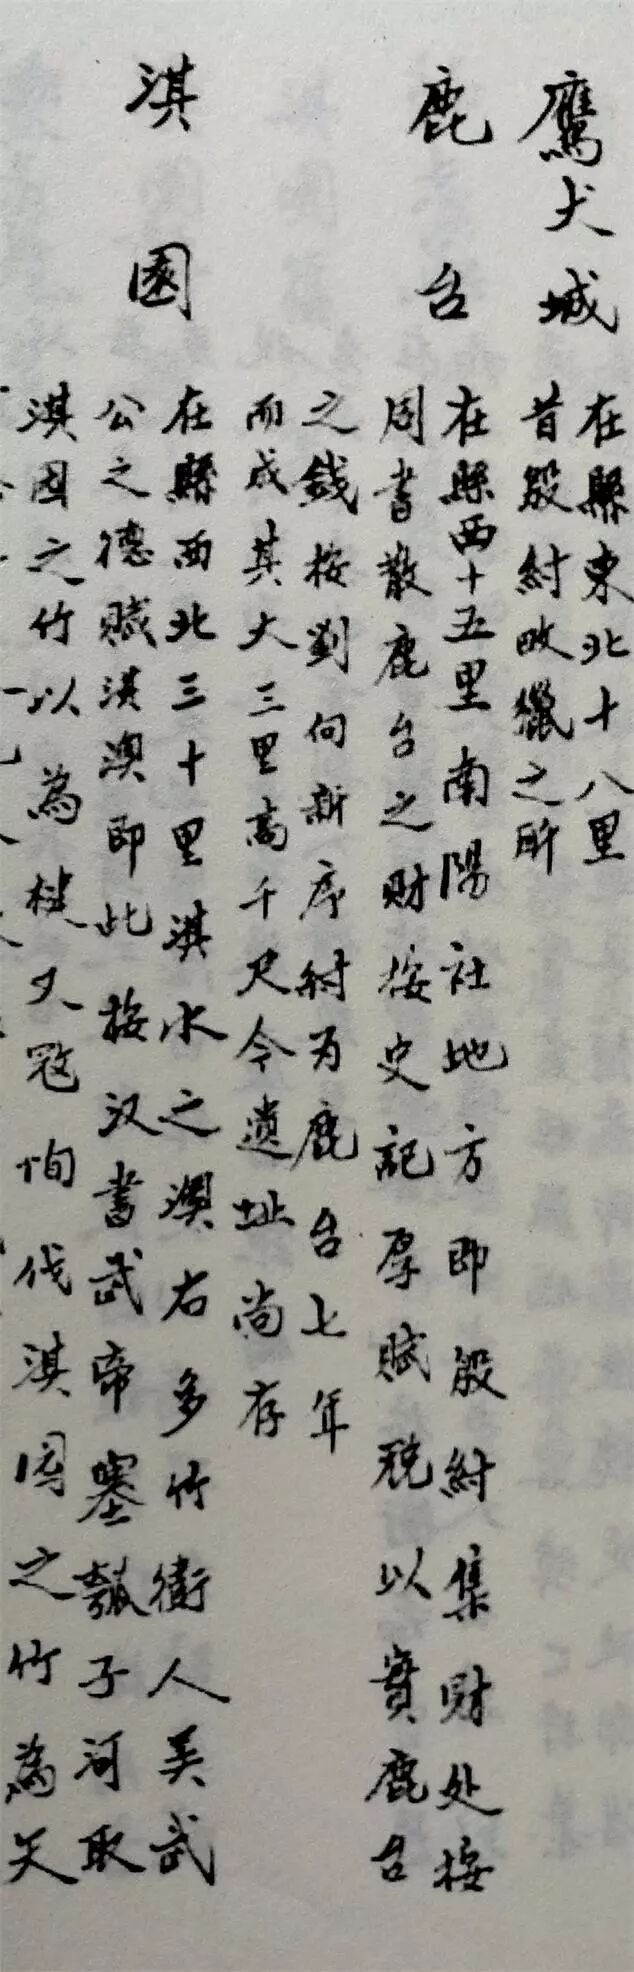 鷹犬城
在縣東北十八里
昔殷紂畋獵之所
鹿台
在縣西十五里南陽社地方即殷紂集財处按
周書散鹿台之財按史記厚賦税以實鹿台
之錢按刘向新序紂为鹿台七年
而成其大三里高千尺今遺址尚存
淇園
在縣西北三十里淇水之澳右多竹衛人美武
公之德賦淇澳即此按汉書武帝塞瓠子河取
淇园之竹以為楗又冦恂伐淇园之竹為矢